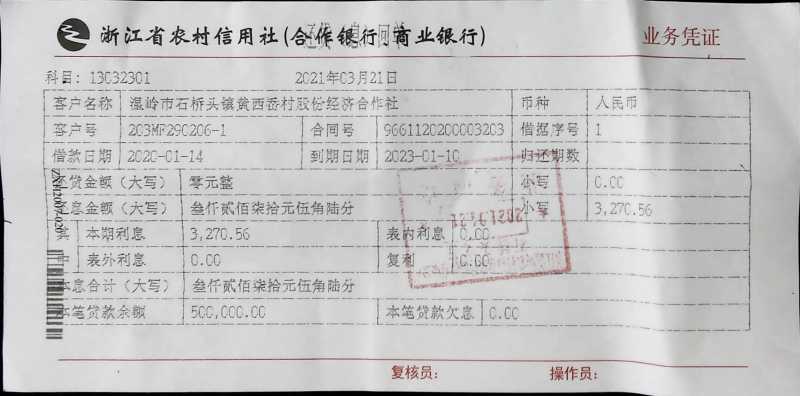 浙江省农村信用社(合作银行、商业银行) 业务凭证
还贷(息)回单
科目: 13032301 2021年03月21日
客户名称 温岭市石桥头镇贫西岙村股份经济合作社 币种 人民币
客户号 203MF290206-1 合同号 9661120200003203 借据序号 1
借款日期 2020-01-14 到期日期 2023-01-10 归还期数
还贷金额(大写) 零元整 小写 0.00
利息金额(大写) 叁仟贰佰柒拾元伍角陆分 小写 3,270.56
其 本期利息 3,270.56 表内利息 0.00
中 表外利息 0.00 复利 0.00
本息合计(大写) 叁仟贰佰柒拾元伍角陆分
本笔贷款余额 500,000.00 本笔贷款欠息 0.00
复核员: 操作员: